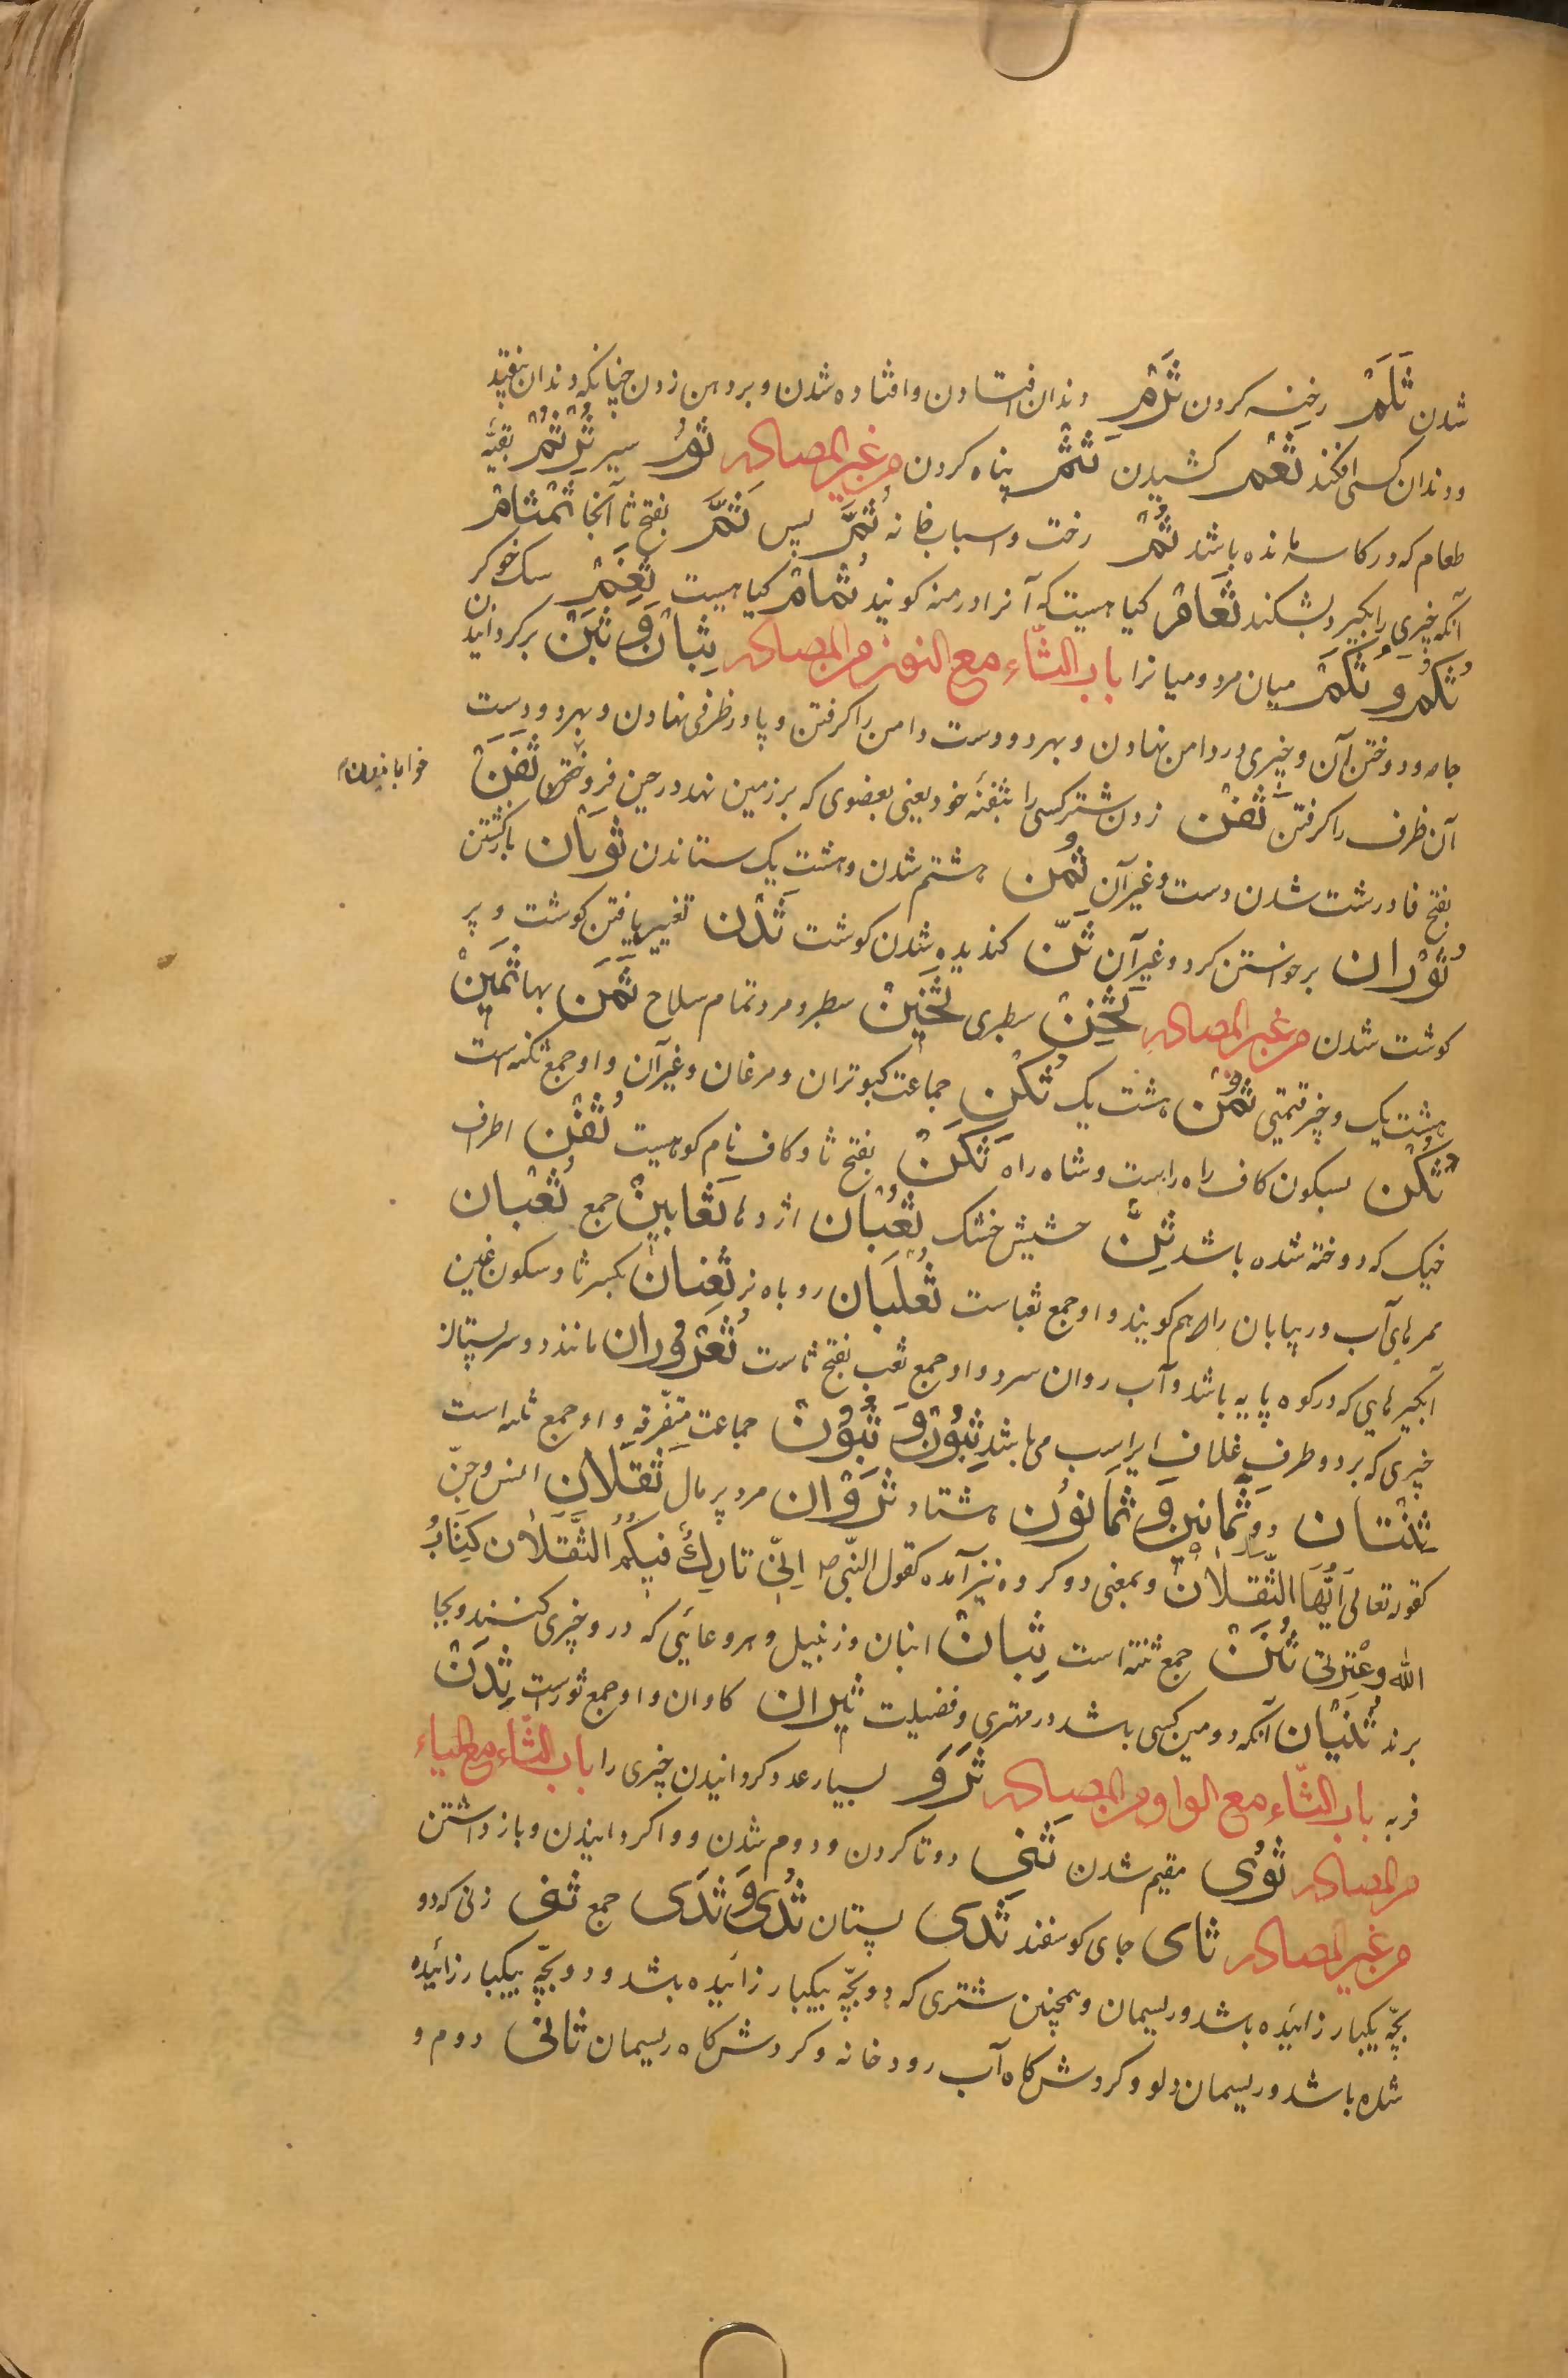 شدن ثَلَمْ رخنه کردن ثَرْمِ دندان افتادن و افتاده شدن و بر دهن زدن چنانکه دندان بیفتد
و دندان کسی افکند ثَعْم کشیدن ثَثْم پناه کردن من غیر المصادر ثوُمْ سیر ثُرْتُمْ بقیّه
طعام که در کاسه مانده باشد ثُمْ رخت و اسباب خانه ثُمَّ پس ثَمَّ بفتح ثا آنجا ثَمْثَامْ
آنکه چیزی را بگیرد و بشکند ثَغَامْ گیاهیست که آنرا درمنه گویند ثُمَامْ گیاهیست ثَغِمْ سک خوکر
ثُکَمْ وَ ثَکَمْ میان مرد و میانرا باب الثّاء مع النون من المصادر ثِبَانْ وَ ثَبْنْ برگردانیدن
جامه و دوختن آن و چیزی در دامن نهادن و بهر دو دست دامن را گرفتن و پا در ظرفی نهادن و بهر دو دست
آن ظرف را گرفتن ثَفْنْ زدن شتر کسی را بثفنهٔ خود یعنی بعضوی که بر زمین نهد در حین فروخفتن ثَفَنْ
بفتح فا درشت شدن دست و غیر آن ثَمْن هشتم شدن و هشت یک ستاندن ثَوَبَان بازگشتن
ثَوْران برخواستن کرد و غیر آن ثَنّ گندیده شدن گوشت ثَدَن تغییر یافتن گوشت و پر
گوشت شدن من غیر المصادر ثَخِنْ سطبری ثَخِینْ سطبر و مرد تمام سلاح ثَمَن بها ثَمِینْ
هشت یک و چیز قیمتی ثُمْن هشت یک ثُکَنْ جماعت کبوتران و مرغان و غیر آن و او جمع ثکنه است
ثُکْن بسکون کاف راه راست و شاه راه ثَکَنْ بفتح ثا و کاف نام کوهیست ثُفَنْ اطراف
خیک که دوخته شده باشد ثِنَّ حشیش خشک ثُعْبَان اژدها ثَعَابِینْ جمع ثُعْبان
ممرهای آب در بیابان را هم گویند و او جمع ثعباست ثُعْلَبَان روباه نر ثِغْنَانْ بکسر ثا و سکون غین
آبگیرهایی که در کوه پایه باشد و آب روان سرد و او جمع ثغب بفتح ثاست ثُعْروُرَان مانند دو سر پستان
چیزی که بر دو طرف غلاف ایر اسب می باشد ثِبُوْنْ وَ ثُبُوْنْ جماعت متفرّقه و او جمع ثبه است
ثِنْتَان دو ثَمَانِین وَ ثَمَانُوْن هشتاد ثَرْوَان مرد پرمال ثَقَلَانِ انس و جنّ
کقوله تعالی اَیُّهَا الثَّقَلَانْ و بمعنی دو گروه نیز آمده کقول النّبی ص اِنِّی تَارِكٌ فیکُم الثَّقَلَان کِتَابُ
الله وَ عِتْرَتِی ثُنَنْ جمع ثنته است ثِبَانْ انبان و زنبیل و هر وعائی که درو چیزی کنند و بجا
برند ثُنْیَان آنکه دومین کسی باشد در مهتری و فضیلت ثِیْرَان گاوان و او جمع ثور است ثِدَنْ
فربه باب الثّاء مع الواو من المصادر ثَرَوَ بسیار عدد گردانیدن چیزی را باب الثّاء مع الیاء
من المصادر ثُوِی مقیم شدن ثَنِی دوتا کردن و دوم شدن و واگردانیدن و باز داشتن
من غیر المصادر ثای جای گوسفند ثَدْی پستان ثُدِی وَ ثَدَی جمع ثنی زنی که دو
بچّه یکبار زائیده باشد و ریسمان و همچنین شتری که دو بچّه بیکبار زائیده باشد و دو بچّه بیکبار زائیده
شده باشد و ریسمان دلو و گردش گاه آب رودخانه و گردش گاه ریسمان ثانی دوم و